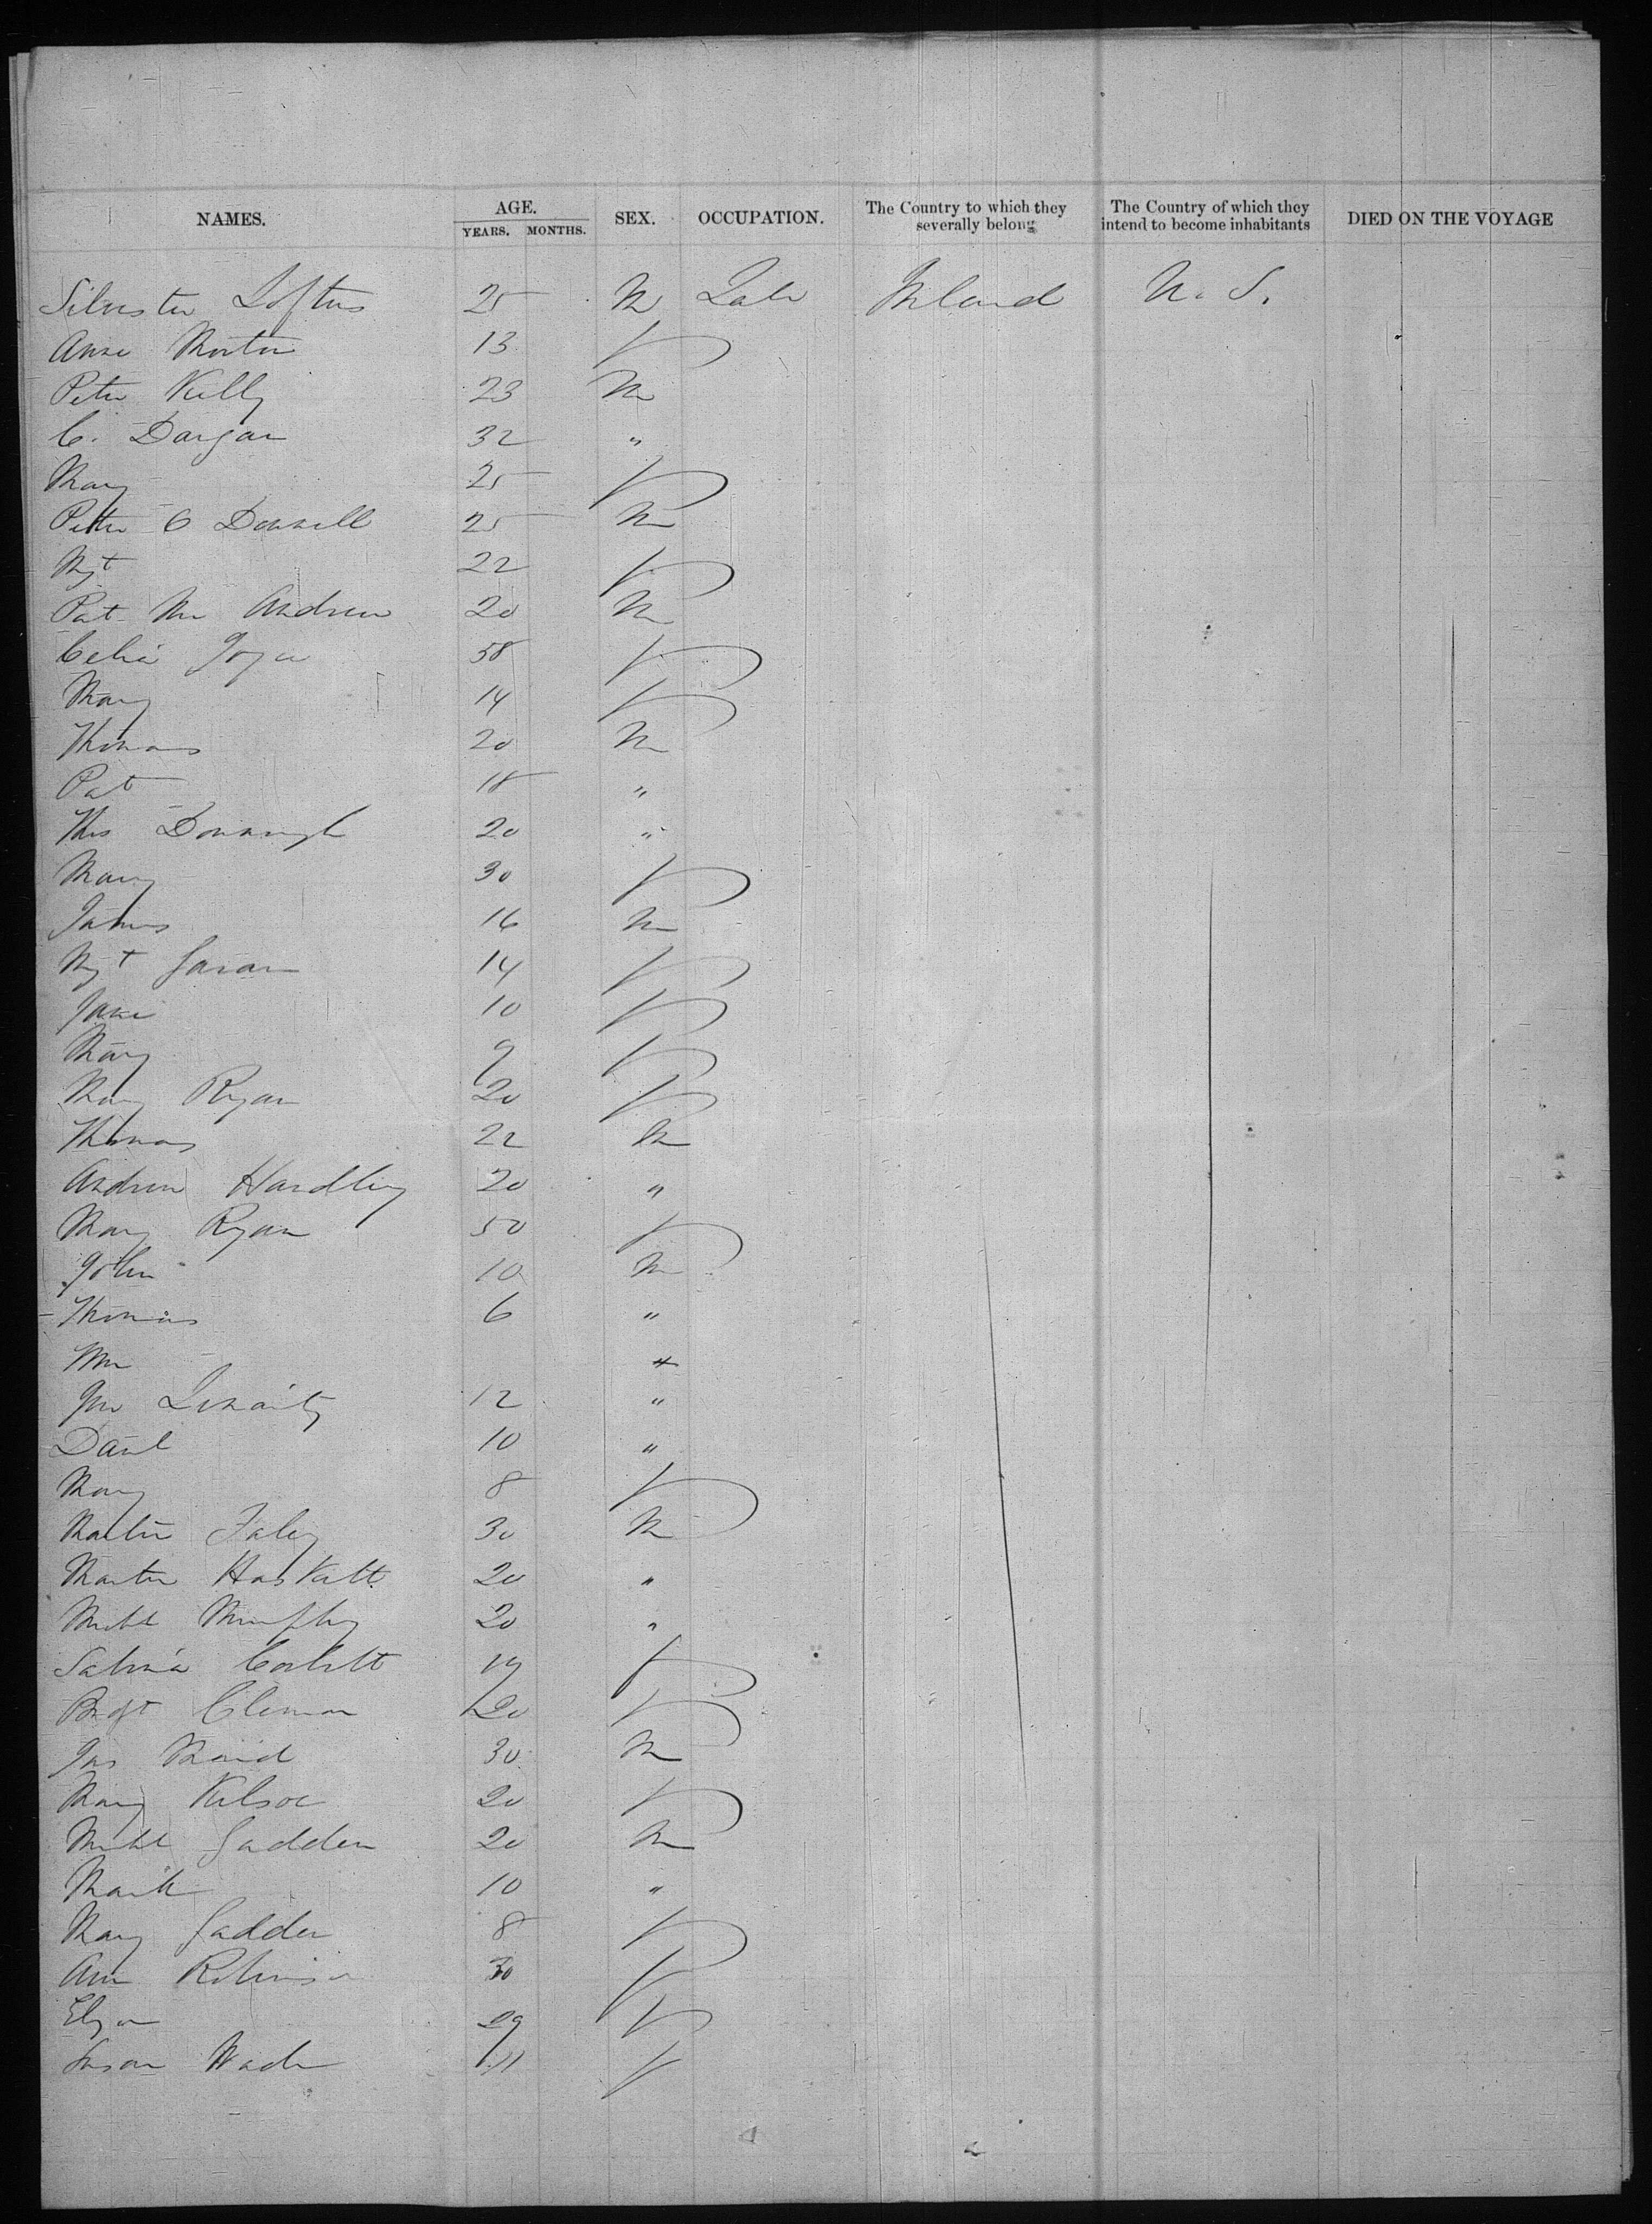 NAMES. AGE. YEARS. MONTHS. SEX. OCCUPATION. The Country to which they severally belong The Country of which they intend to become inhabitants DIED ON THE VOYAGE
Silvester Loftus 25 M Labr Ireland U. S.
Anne Morton 13 F
Peter Kelly 23 M
C. Dargan 32 "
Mary 25 F
Peter O Donnell 25 M
Mgt 22 F
Pat Mc Andrew 20 M
Celia Joyce 58 F
Mary 14 F
Thomas 20 M
Pat 18 "
Thos Donnough 20 "
Mary 30 F
James 16 M
Mgt Gavan 14 F
Jane 10 F
Mary 9 F
Mary Ryan 20 F
Thomas 22 M
Andrew Handley 20 "
Mary Ryan 50 F
John 10 M
Thomas 6 "
Wm "
Jno 12 "
Danl 10 "
Mary 8 F
Martin Faley 30 M
Martin Haskett 20 "
Michl Murphy 20 "
Sabina Corbett 19 F
Bridgt 20 F
Jas 30 M
Mary 20 F
Michl Gadden 20 M
Mark 10 "
Mary Gadden 8 F
Ann Robinson 30 F
Eliza 29 F
Susan Wade 11 F